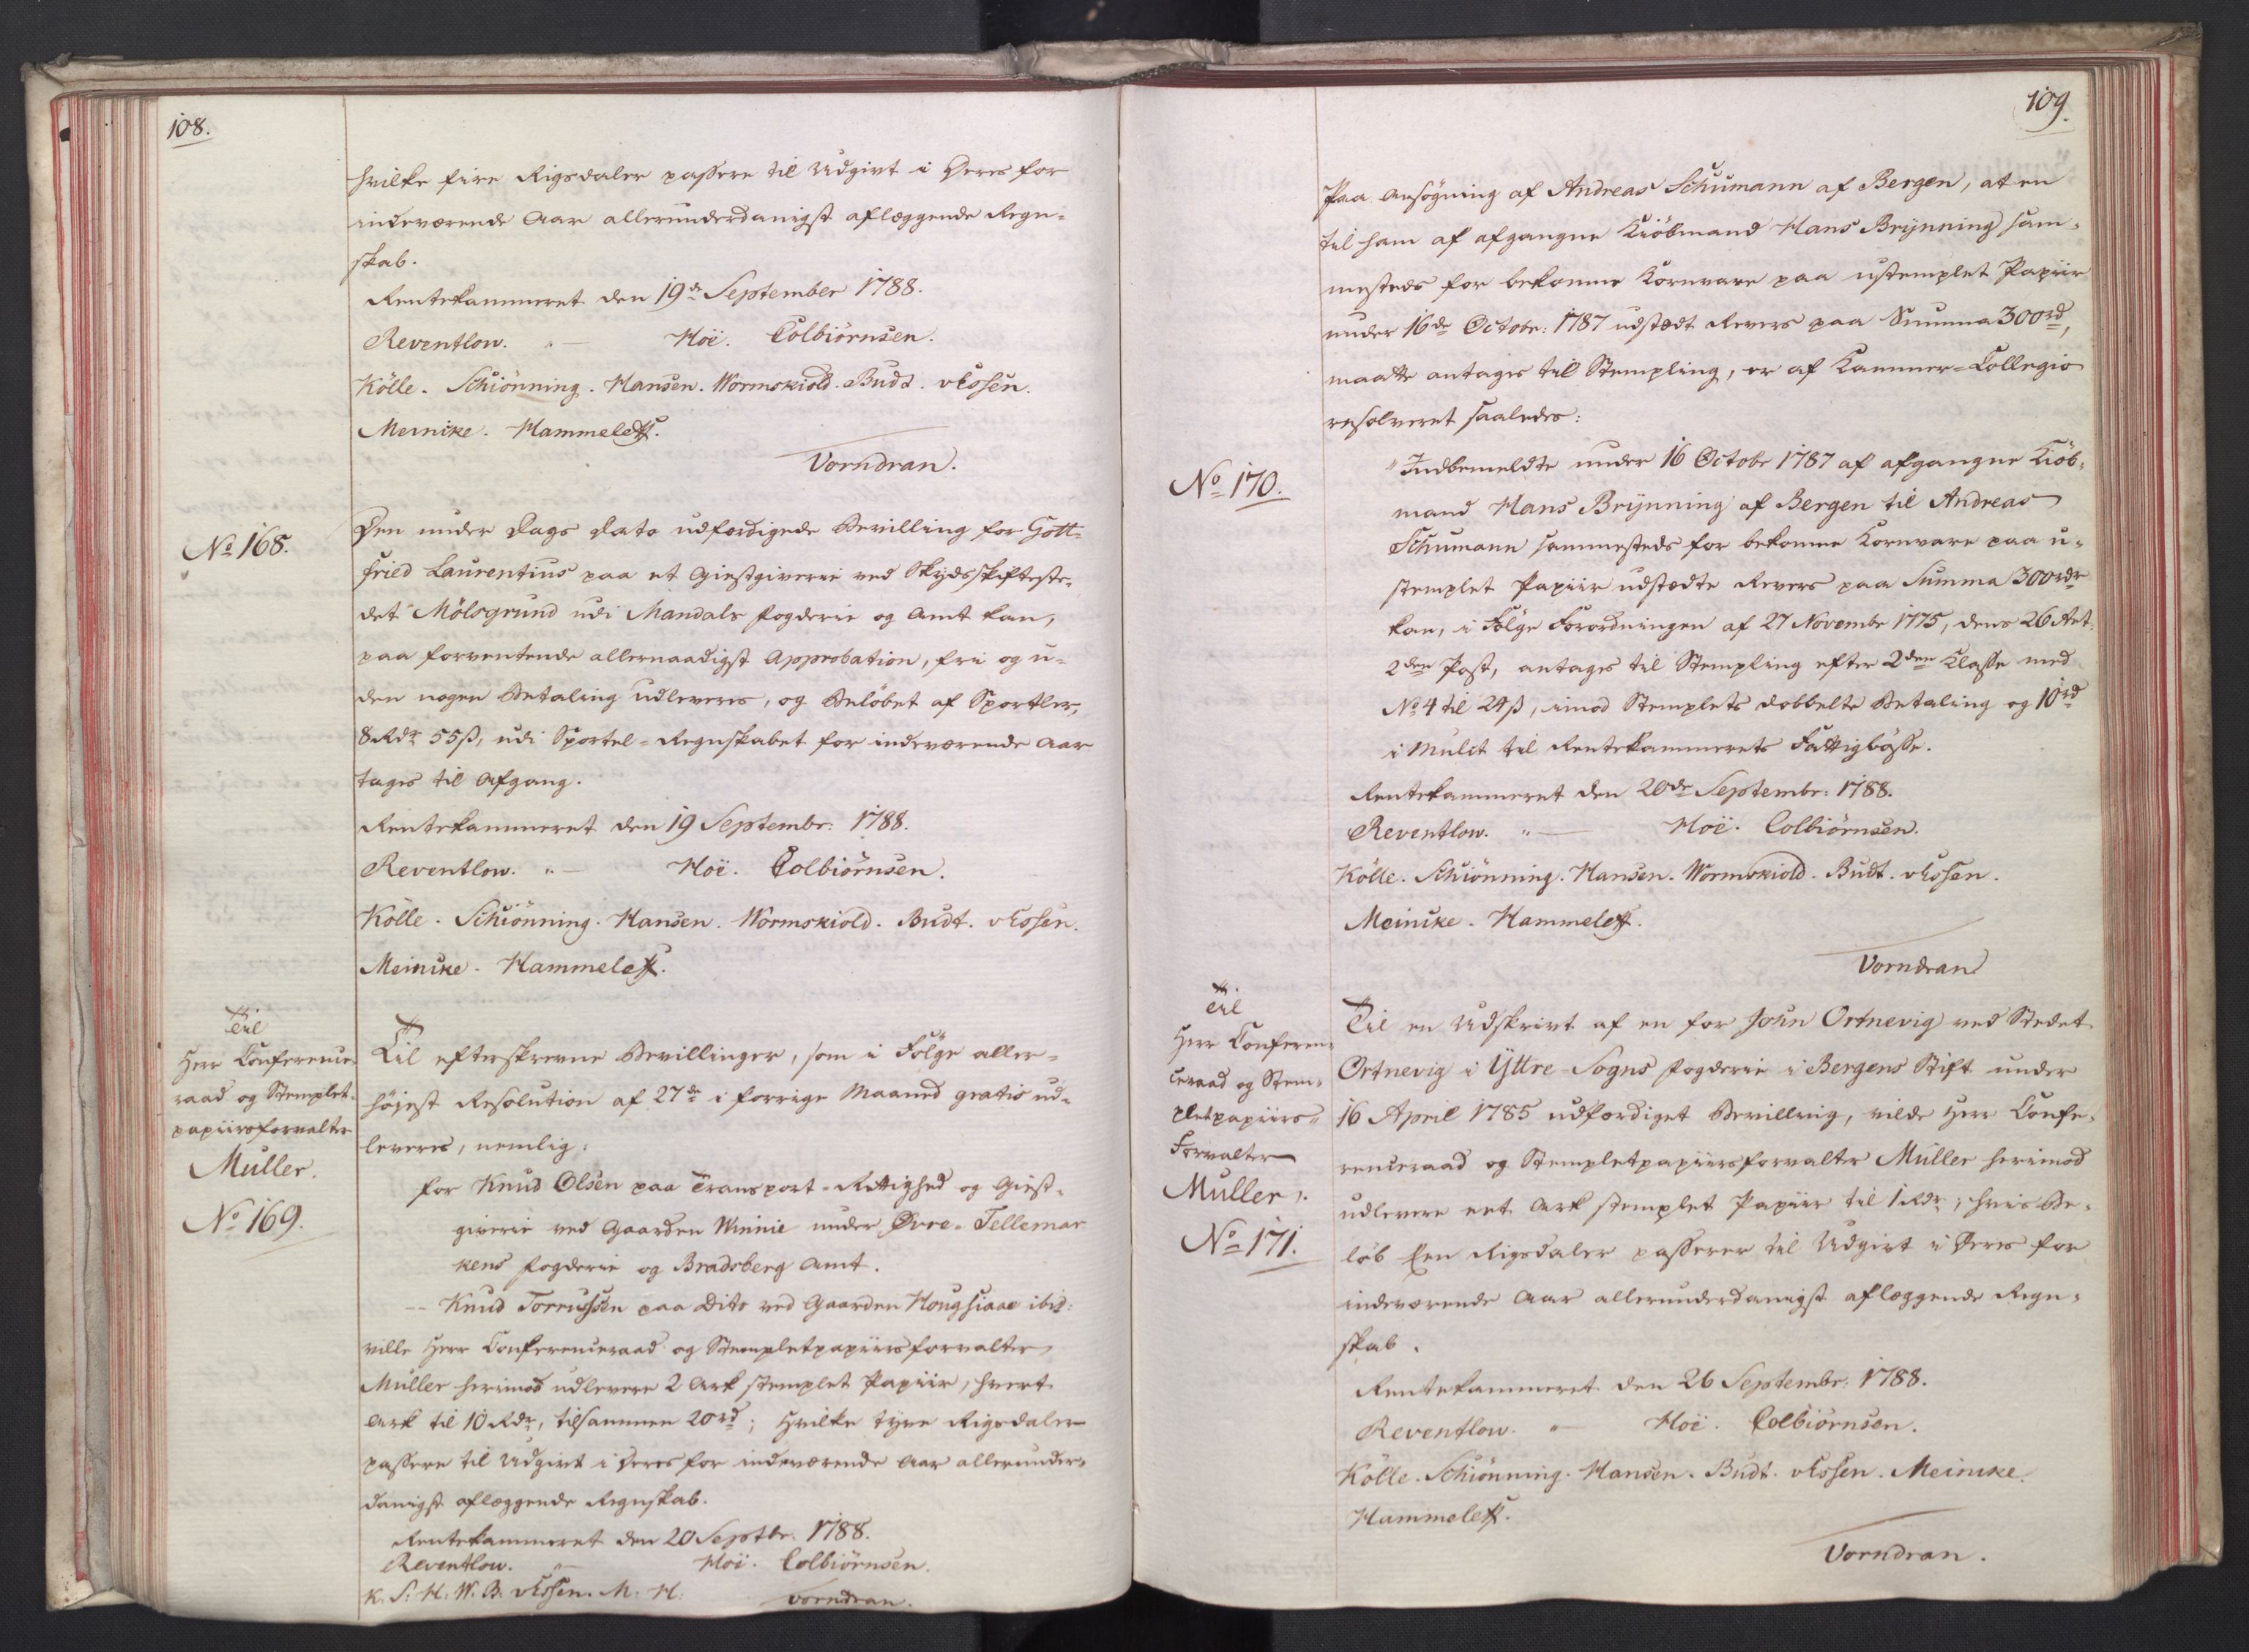 108.
hvilke fire Rigsdaler passere til Udgivt i Deres for
indeværende Aar allerunderdanigst aflæggende Regn-
skab.
Rentekammeret den 19de September 1788.
Reventlow. " — Hoë. Colbiörnsen.
Kölle. Schiönning. Hansen. Wormskiold. Budt. vEssen.
Meinike. Hammeleff.
Vorndran.
No 168.
Den under Dags Dato udfærdigede Bevilling for Gott-
fried Laurentius paa et Giestgiverie ved Skydsskifteste-
det Mölsgrund udi Mandals Fogderie og Amt kan,
paa forventende allernaadigst Approbation, fri og u-
den nogen Betaling udleveres, og Beløbet af Sportler,
8 Rdr 55 ß, udi Sportel-Regnskabet for indeværende Aar
tages til Afgang.
Rentekammeret den 19 Septembr: 1788.
Reventlow. " — Hoë. Colbiörnsen.
Kölle. Schiönning. Hansen. Wormskiold. Budt. vEssen.
Meinike. Hammeleff.
Til
Herr Conference-
raad og Stemplet-
papiirsforvalter
Müller.
No 169.
Til efterskrevne Bevillinger, som i Følge aller-
højest Resolution af 27de i forrige Maaned gratis ud-
leveres, nemlig:
for Knud Olsen paa Transport-Rettighed og Giest-
giverie ved Gaarden Winnie under Øvre-Tellemar
kens Fogderie og Bradsberg Amt.
-- Knud Torrussen paa Dito ved Gaarden Hougsiaae ibid:
ville Herr Conferenceraad og Stempletpapiirsforvalter
Müller herimod udlevere 2 Ark stemplet Papiir, hvert
Ark til 10 Rdr, tilsammen 20 rd; Hvilke tyve Rigsdaler
passere til Udgivt i Deres for indeværende Aar allerunder-
danigst aflæggende Regnskab.
Rentekammeret den 20 Septbr. 1788.
Reventlow. " — Hoë. Colbiörnsen.
K. S. H. W. B. vEssen. M. H.
Vorndran.
109.
Paa Ansøgning af Andreas Schumann af Bergen, at en
til ham af afgangne Kiöbmand Hans Brÿnning sam-
mesteds for bekomne Kornvare paa ustemplet Papiir
under 16de Octobr: 1787 udstædt Revers paa Summa 300 rd,
maatte antages til Stempling, er af Kammer-Collegio
resolveret saaledes:
No 170.
"Indbemeldte under 16 Octobr 1787 af afgangne Kiöb-
mand Hans Brÿnning af Bergen til Andreas
Schumann sammesteds for bekomne Kornvare paa u-
stemplet Papiir udstædte Revers paa Summa 300 rdr
kan, i Følge Forordningen af 27 Novembr 1775, dens 26 Art.
2den Post, antages til Stempling efter 2den Classe med
No 4 til 24 ß, imod Stemplets dobbelte Betaling og 10 rd
i Mulct til Rentekammerets Fattigbøsse.
Rentekammeret den 20de Septembr: 1788.
Reventlow. " — Hoë. Colbiörnsen.
Kölle. Schiönning. Hansen. Wormskiold. Budt. vEssen.
Meinike. Hammeleff.
Vorndran
Til
Herr Conferen-
ceraad og Stem-
pletpapiirs-
Forvalter
Müller.
No 171.
Til en Udskrivt af en for John Ortnevig ved Stedet
Ortnevig i Yttre-Sogns Fogderie i Bergens Stift under
16 April 1785 udfærdiget Bevilling, vilde Herr Confe-
renceraad og Stempletpapiirsforvalter Müller herimod
udlevere eet Ark stemplet Papiir til 1 Rdr; hvis Be-
løb Een Rigsdaler passerer til Udgivt i Deres for
indeværende Aar allerunderdanigst aflæggende Regn-
skab.
Rentekammeret den 26 Septembr: 1788.
Reventlow. " — Hoë. Colbiörnsen.
Kölle. Schiönning. Hansen. Budt. vEssen. Meinike.
Hammeleff.
Vorndran.